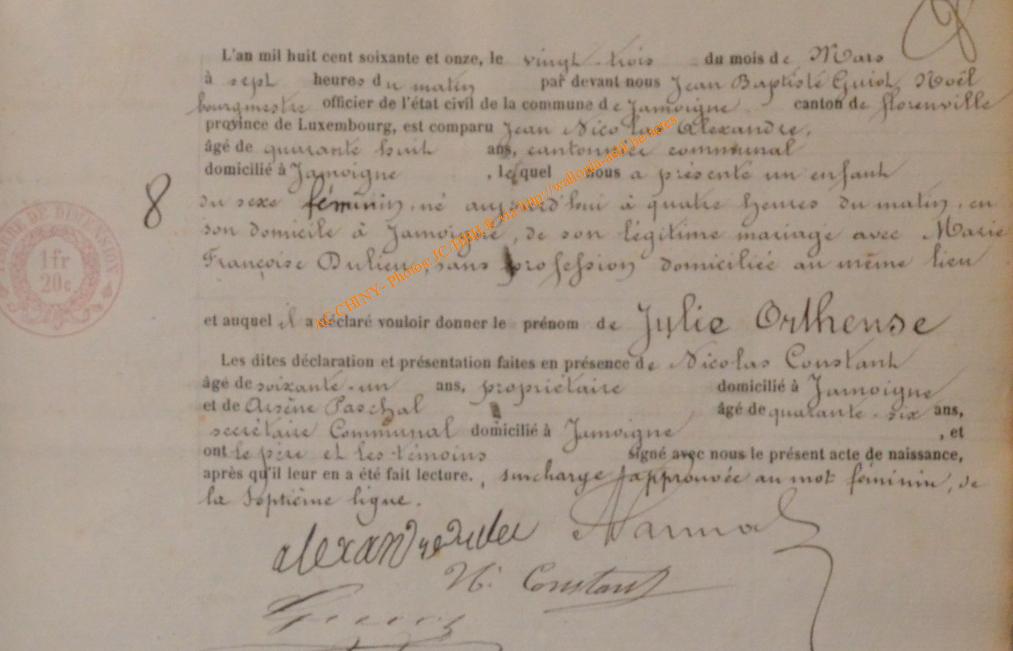 L'an mil huit cent soixante et onze, le vingt-trois du mois de Mars
à sept heures du matin par devant nous Jean Baptiste Guiot Noël
bourgmestre officier de l'état civil de la commune de Jamoigne canton de florenville
province de Luxembourg, est comparu Jean Nicolas Alexandre,
âgé de quarante huit ans, cantonnier communal
domicilié à Jamoigne, lequel nous a présenté un enfant
8
du sexe féminin, né aujourd'hui à quatre heures du matin, en
son domicile à Jamoigne, de son légitime mariage avec Marie
TIMBRE DE DIMENSION
1 fr
20 c
Françoise Dulieu, sans profession domiciliée au même lieu
et auquel il a déclaré vouloir donner le prénom de Julie Orthense
Les dites déclaration et présentation faites en présence de Nicolas Constant
âgé de soixante-un ans, propriétaire domicilié à Jamoigne
et de Arsène Paschal âgé de quarante-six ans,
secrétaire Communal domicilié à Jamoigne, et
ont le père et les témoins signé avec nous le présent acte de naissance,
après qu'il leur en a été fait lecture., surcharge approuvée au mot féminin, de
la Septième ligne.
N. Constant